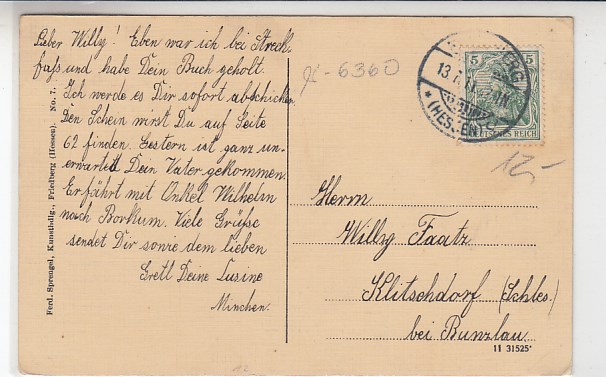 Lieber Willy! Eben war ich bei Streck
fuss und habe Dein Buch geholt.
Ich werde es Dir sofort abschicken.
Den Schein wirst Du auf Seite
62 finden. Gestern ist ganz un-
erwartet Dein Vater gekommen.
Er fährt mit Onkel Wilhelm
nach Borkum. Viele Grüsse
sendet Dir sowie dem lieben
Gretl Deine Cusine
Minchen.
Ferd. Sprengel, Kunsthdlg., Friedberg (Hessen). No. 7.
6360
5 5
13.7.11
(HESSEN)
DEUTSCHES REICH
12,-
Herrn
Willy Faatz
Klitschdorf (Schles.)
bei Bunzlau.
11 31525
12